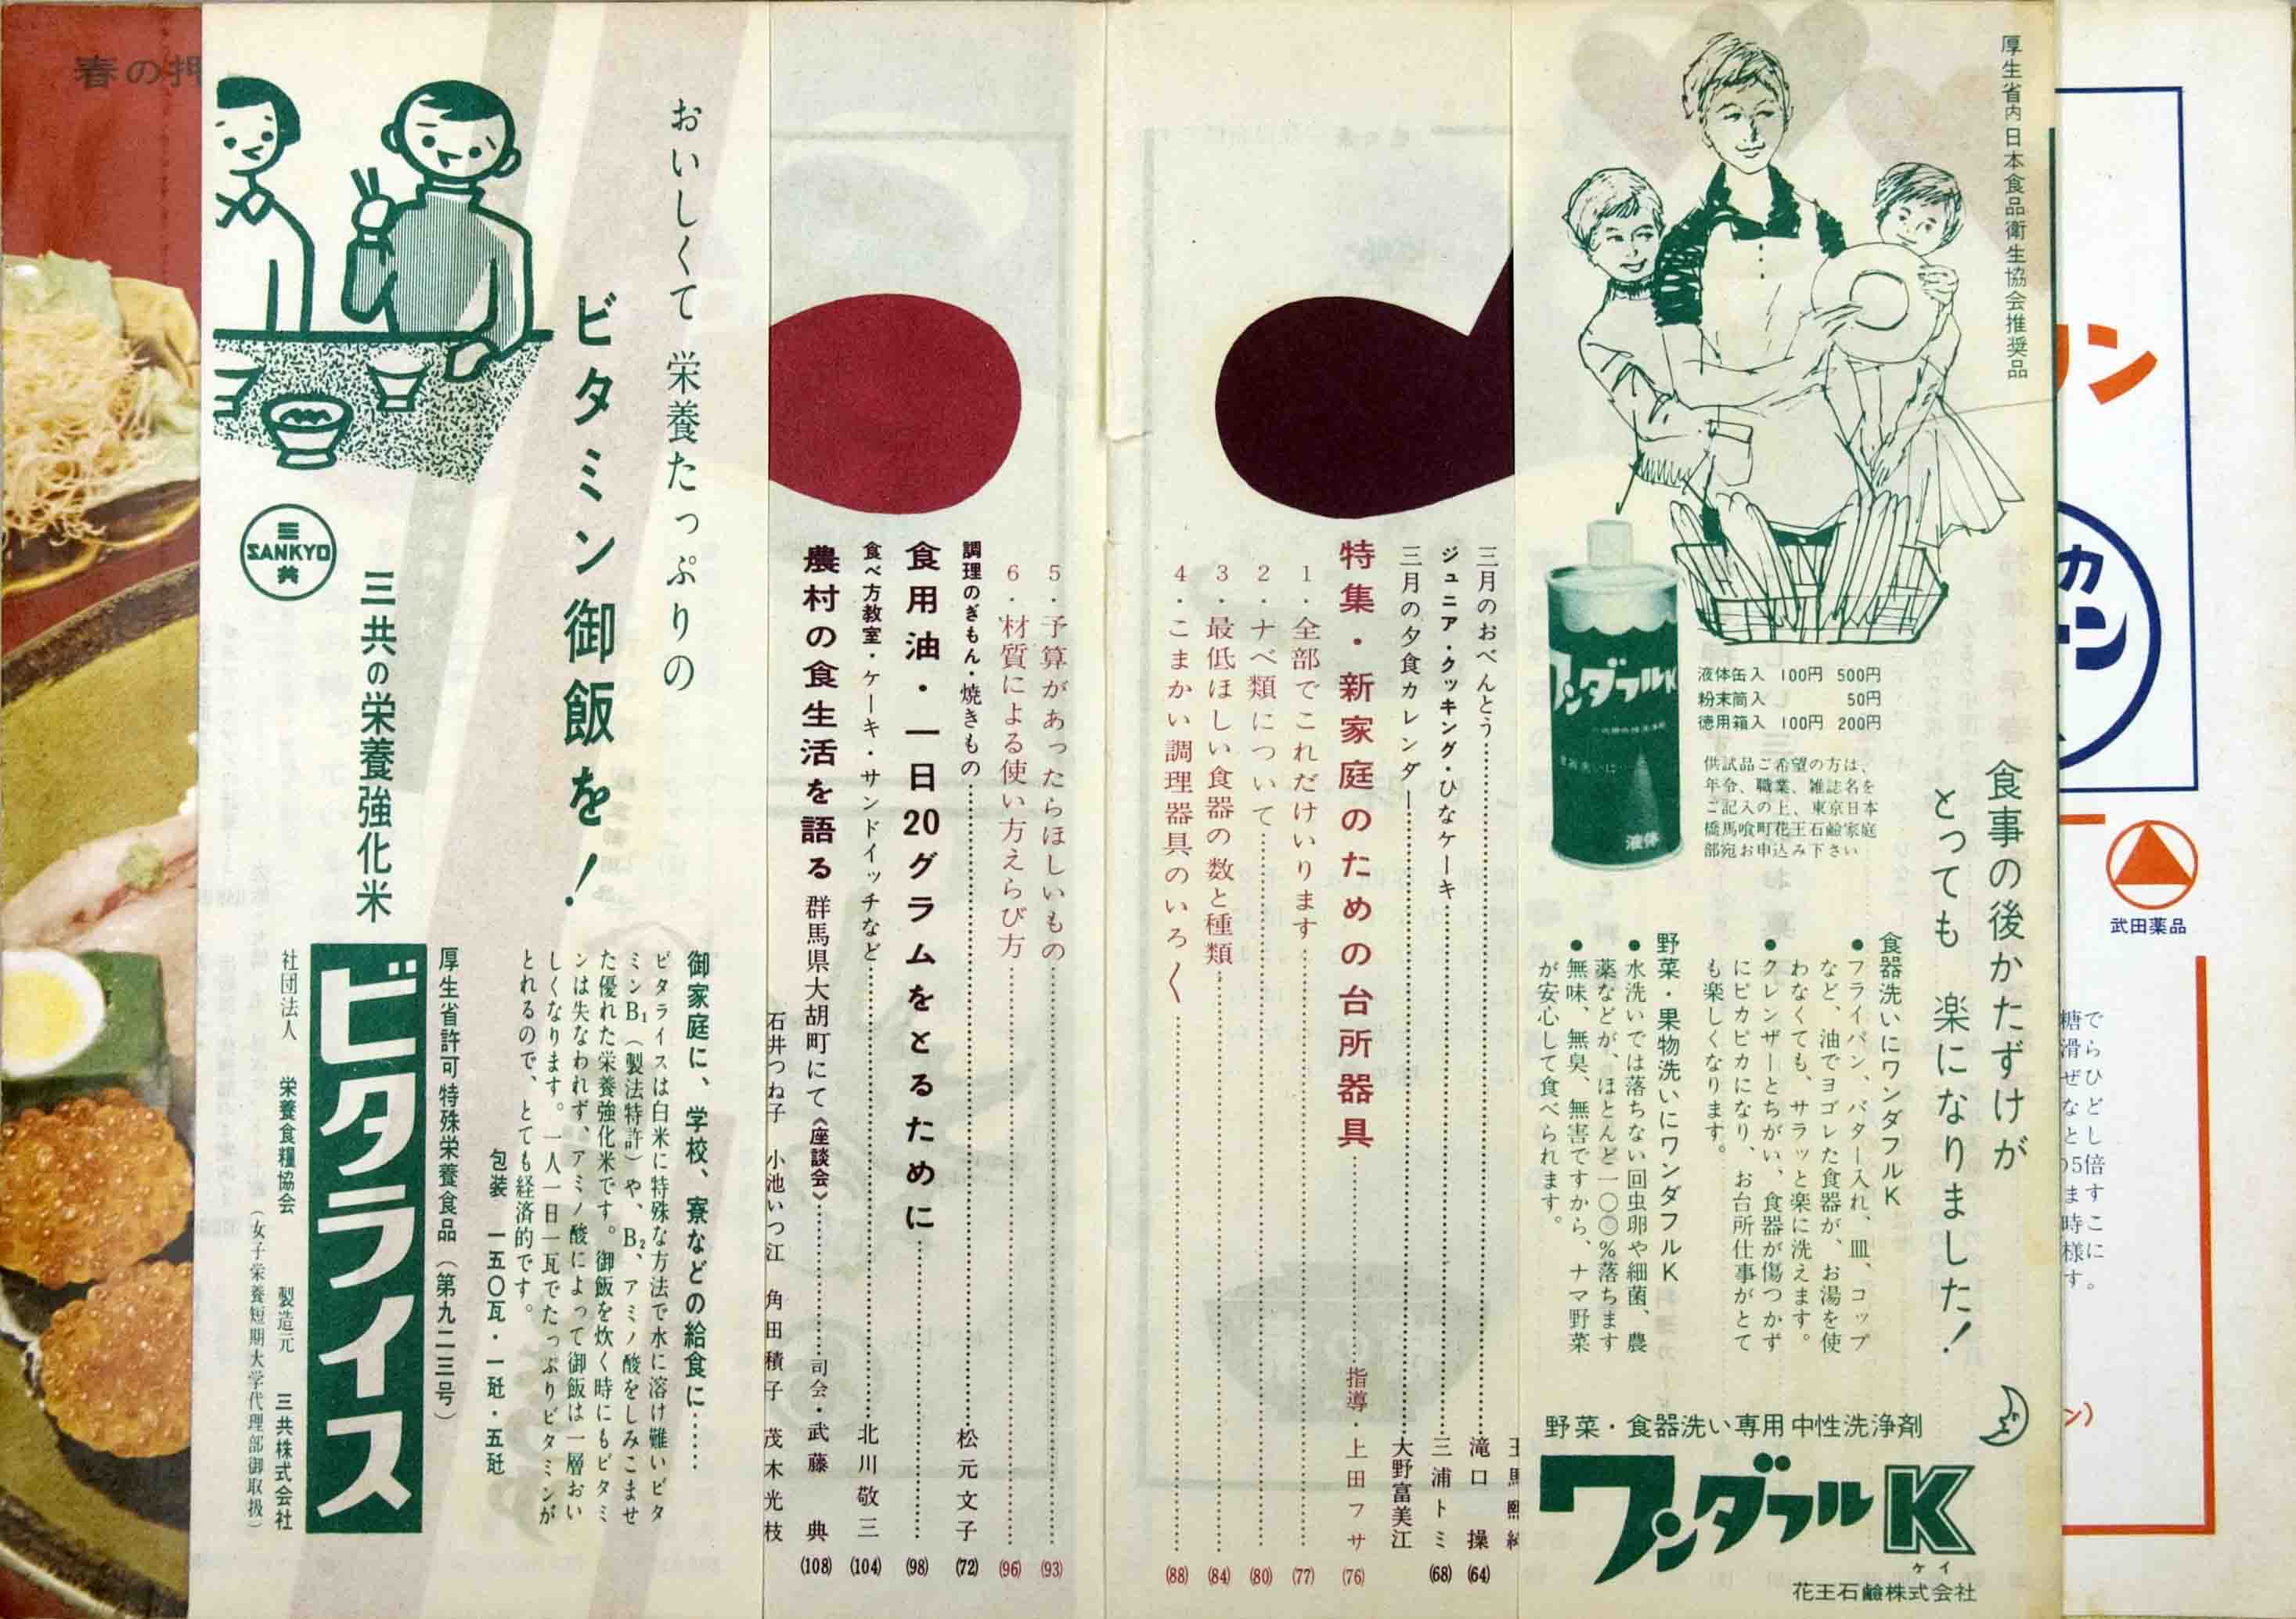 厚生省内日本食品衛生協会推奨品
食事の後かたずけが
とっても 楽になりました!
液体缶入 100円 500円
粉末筒入 50円
徳用箱入 100円 200円
供試品ご希望の方は、
年令、職業、雑誌名を
ご記入の上、東京日本
橋馬喰町花王石鹼家庭
部宛お申込み下さい
ワンダフルK
液体
食器洗いにワンダフルK
●フライパン、バター入れ、皿、コップ
など、油でヨゴレた食器が、お湯を使
わなくても、サラッと楽に洗えます。
●クレンザーとちがい、食器が傷つかず
にピカピカになり、お台所仕事がとて
も楽しくなります。
野菜・果物洗いにワンダフルK
●水洗いでは落ちない回虫卵や細菌、農
薬などが、ほとんど一〇〇%落ちます
●無味、無臭、無害ですから、ナマ野菜
が安心して食べられます。
野菜・食器洗い専用中性洗浄剤
ワンダフルK
ケイ
花王石鹼株式会社
三月のおべんとう 滝口 操 (64)
ジュニア・クッキング・ひなケーキ 三浦トミ (68)
三月の夕食カレンダー 大野富美江
特集・新家庭のための台所器具 指導・上田フサ (76)
1・全部でこれだけいります (77)
2・ナベ類について (80)
3・最低ほしい食器の数と種類 (84)
4・こまかい調理器具のいろ〱 (88)
5・予算があったらほしいもの (93)
6・材質による使い方えらび方 (96)
調理のぎもん・焼きもの 松元文子 (72)
食用油・一日20グラムをとるために (98)
食べ方教室・ケーキ・サンドイッチなど 北川敬三 (104)
農村の食生活を語る 群馬県大胡町にて《座談会》 司会・武藤 典 (108)
石井つね子 小池いつ江 角田積子 茂木光枝
おいしくて 栄養たっぷりの
ビタミン御飯を!
三
SANKYO
共
三共の栄養強化米
御家庭に、学校、寮などの給食に……
ビタライスは白米に特殊な方法で水に溶け難いビタ
ミンB₁(製法特許)や、B₂、アミノ酸をしみこませ
た優れた栄養強化米です。御飯を炊く時にもビタミ
ンは失なわれず、アミノ酸によって御飯は一層おい
しくなります。一人一日一瓦でたっぷりビタミンが
とれるので、とても経済的です。
包装 一五〇瓦・一瓩・五瓩
厚生省許可特殊栄養食品(第九二三号)
ビタライス
社団法人 栄養食糧協会 製造元 三共株式会社
(女子栄養短期大学代理部御取扱)
春の押
武田薬品